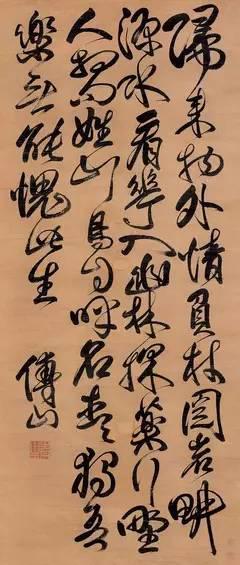 歸来物外情負杖閱岩畊
源水看華入幽林採藥行野
人相問姓山鳥自呼名去獨吾
樂無能愧此生
傅山